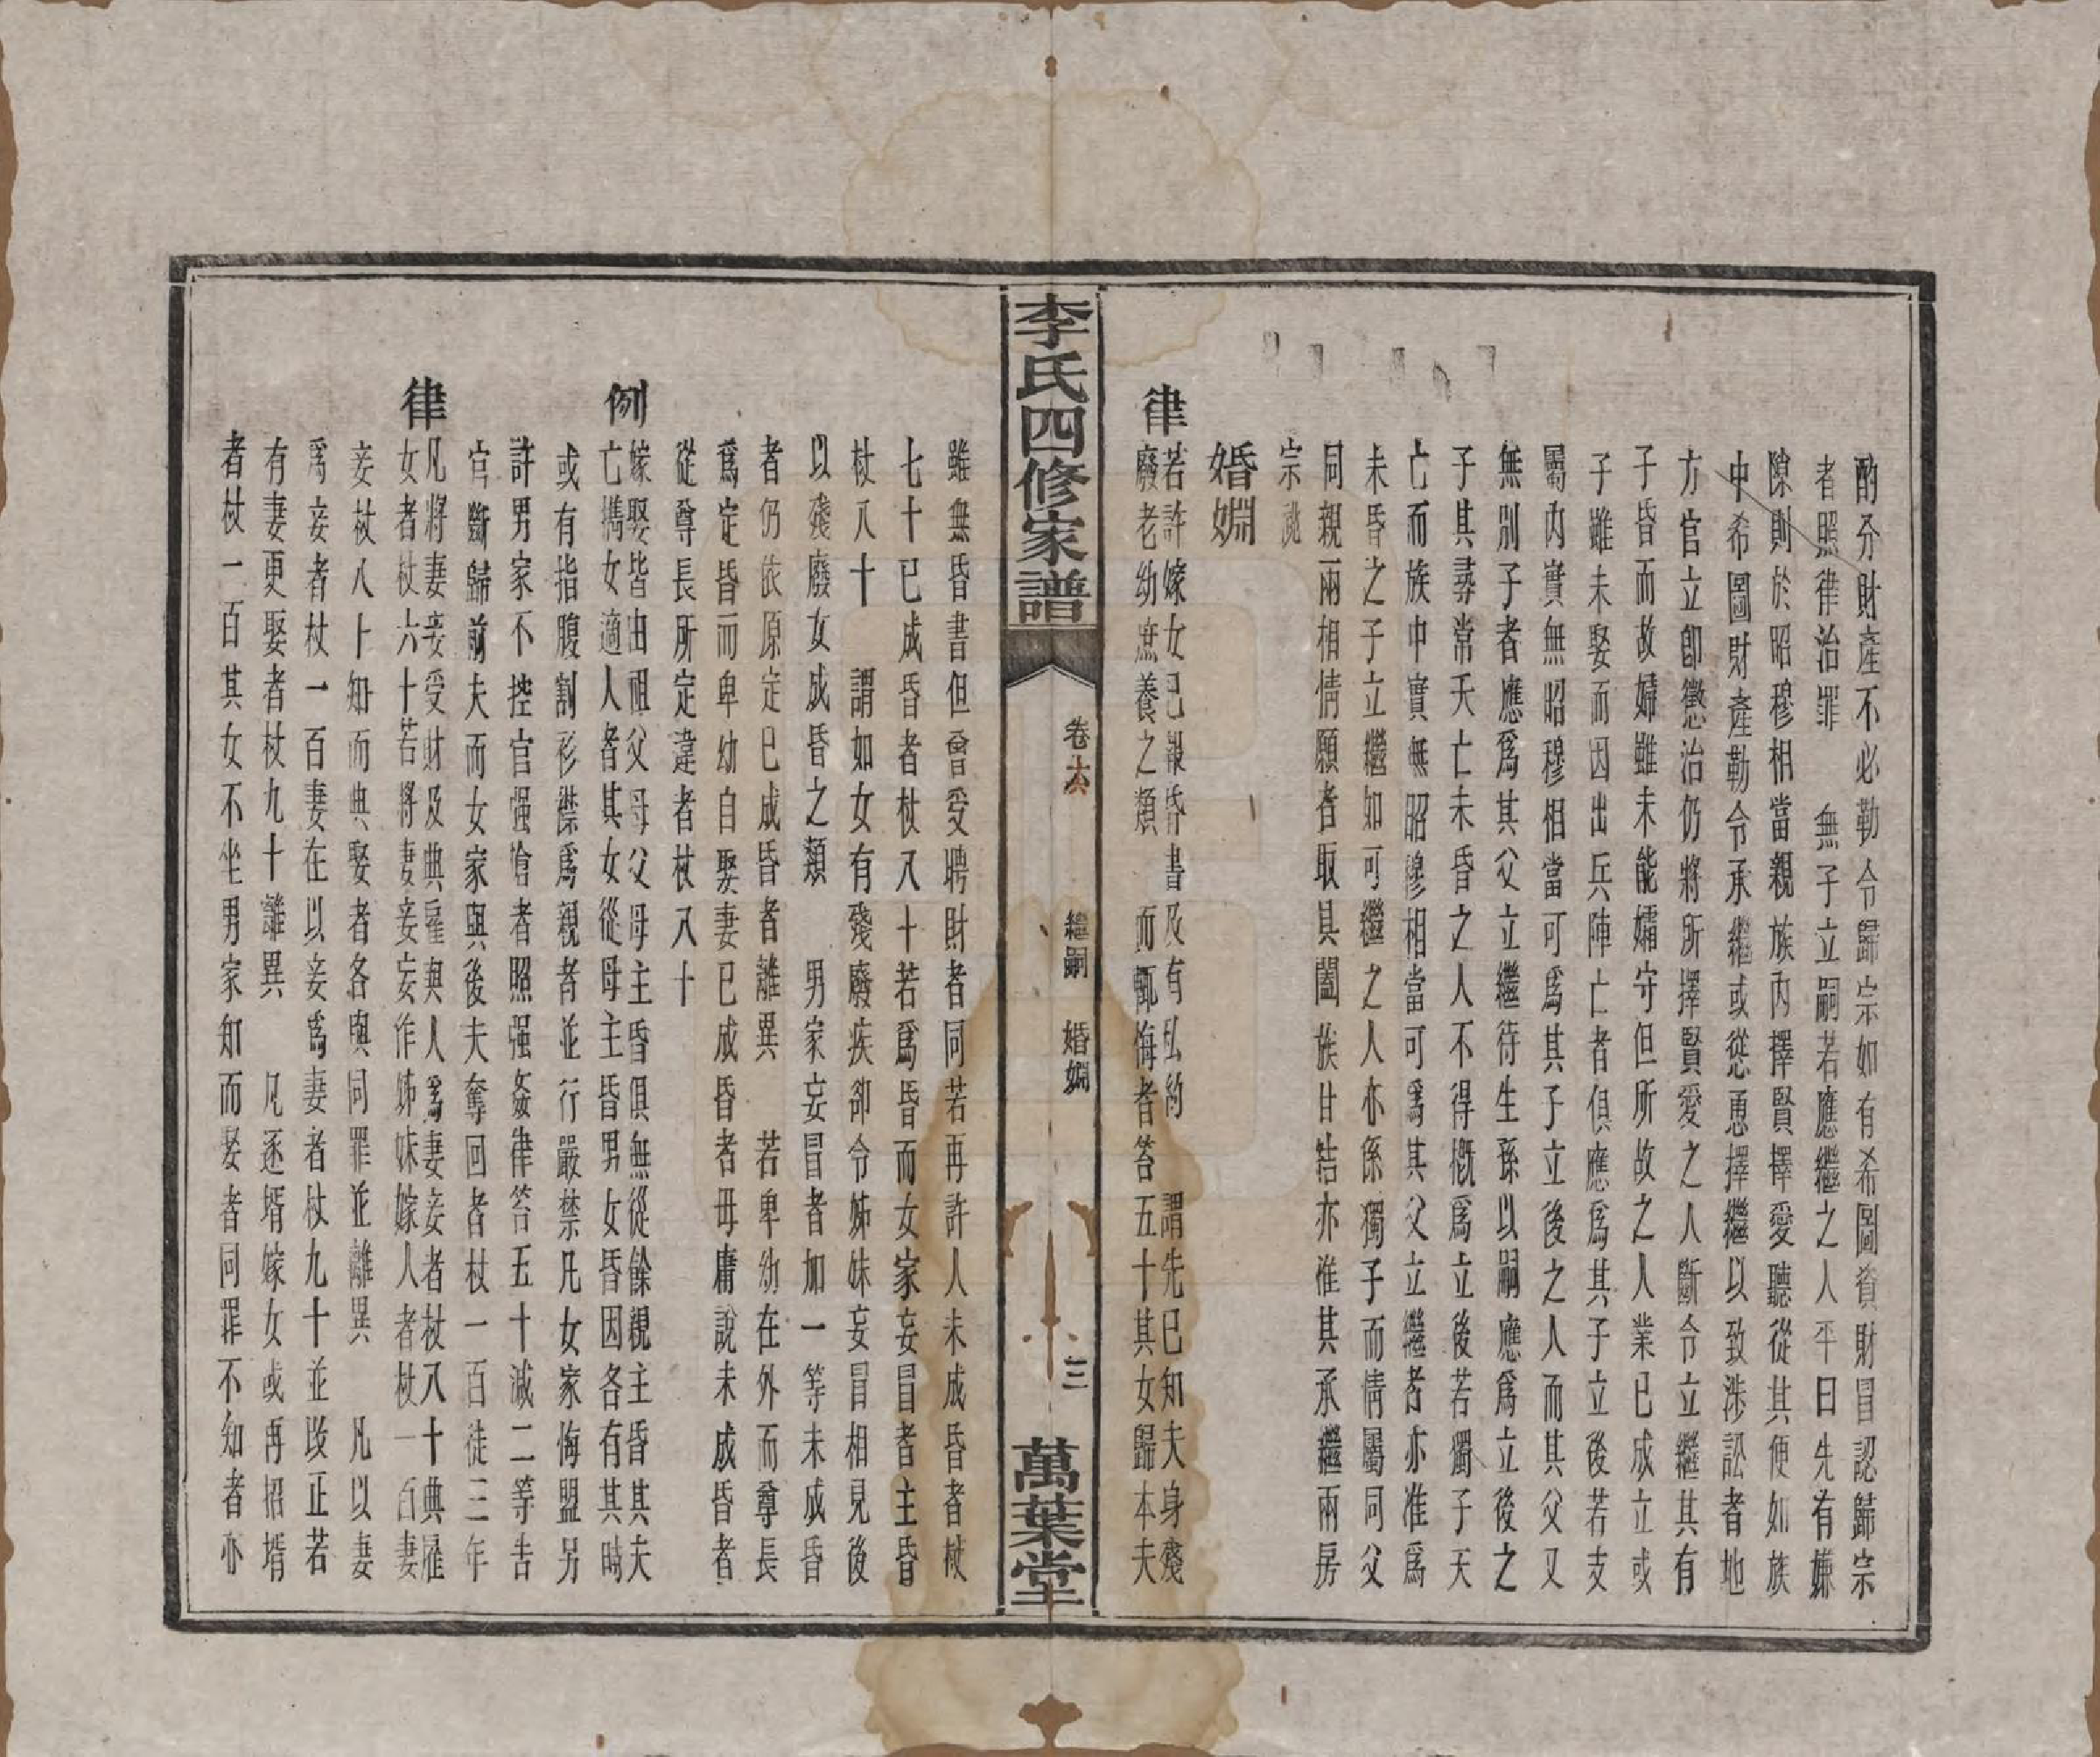 酌分財產不必勒令歸宗如有希圖貲財冒認歸宗
者照律治罪 無子立嗣若應繼之人平日先有嫌
隙則於昭穆相當親族內擇賢擇愛聽從其便如族
中希圖財產勒令承繼或慫恿擇繼以致涉訟者地
方官立卽懲治仍將所擇賢愛之人斷令立繼其有
子昏而故婦雖未能孀守但所故之人業已成立或
子雖未娶而因出兵陣亡者俱應爲其子立後若支
屬內實無昭穆相當可爲其子立後之人而其父又
無別子者應爲其父立繼待生孫以嗣應爲立後之
子其尋常夭亡未昏之人不得概爲立後若獨子夭
亡而族中實無昭穆相當可爲其父立繼者亦准爲
未昏之子立繼如可繼之人亦係獨子而情屬同父
同親兩相情願者取具闔族甘結亦准其承繼兩房
宗祧
婚婣
律
若許嫁女已報昏書及有私約 謂先已知夫身殘
廢老幼庶養之類 而輒悔者笞五十其女歸本夫
李氏四修家譜
卷六
繼嗣 婚婣
三
萬葉堂
雖無昏書但曾受聘財者同若再許人未成昏者杖
七十已成昏者杖八十若爲昏而女家妄冒者主昏
杖八十 謂如女有殘廢疾卻令姊妹妄冒相見後
以殘廢女成昏之類 男家妄冒者加一等未成昏
者仍依原定已成昏者離異 若卑幼在外而尊長
爲定昏而卑幼自娶妻已成昏者毋庸說未成昏者
從尊長所定違者杖八十
例
嫁娶皆由祖父母父母主昏俱無從餘親主昏其夫
亡攜女適人者其女從母主昏男女昏因各有其時
或有指腹割衫襟爲親者並行嚴禁凡女家悔盟另
許男家不控官强搶者照强姦律笞五十減二等告
官斷歸前夫而女家與後夫奪回者杖一百徒三年
律
凡將妻妾受財及典雇與人爲妻妾者杖八十典雇
女者杖六十若將妻妾妄作姊妹嫁人者杖一百妻
妾杖八十知而典娶者各與同罪並離異 凡以妻
爲妾者杖一百妻在以妾爲妻者杖九十並改正若
有妻更娶者杖九十離異 凡逐壻嫁女或再招壻
者杖一百其女不坐男家知而娶者同罪不知者亦